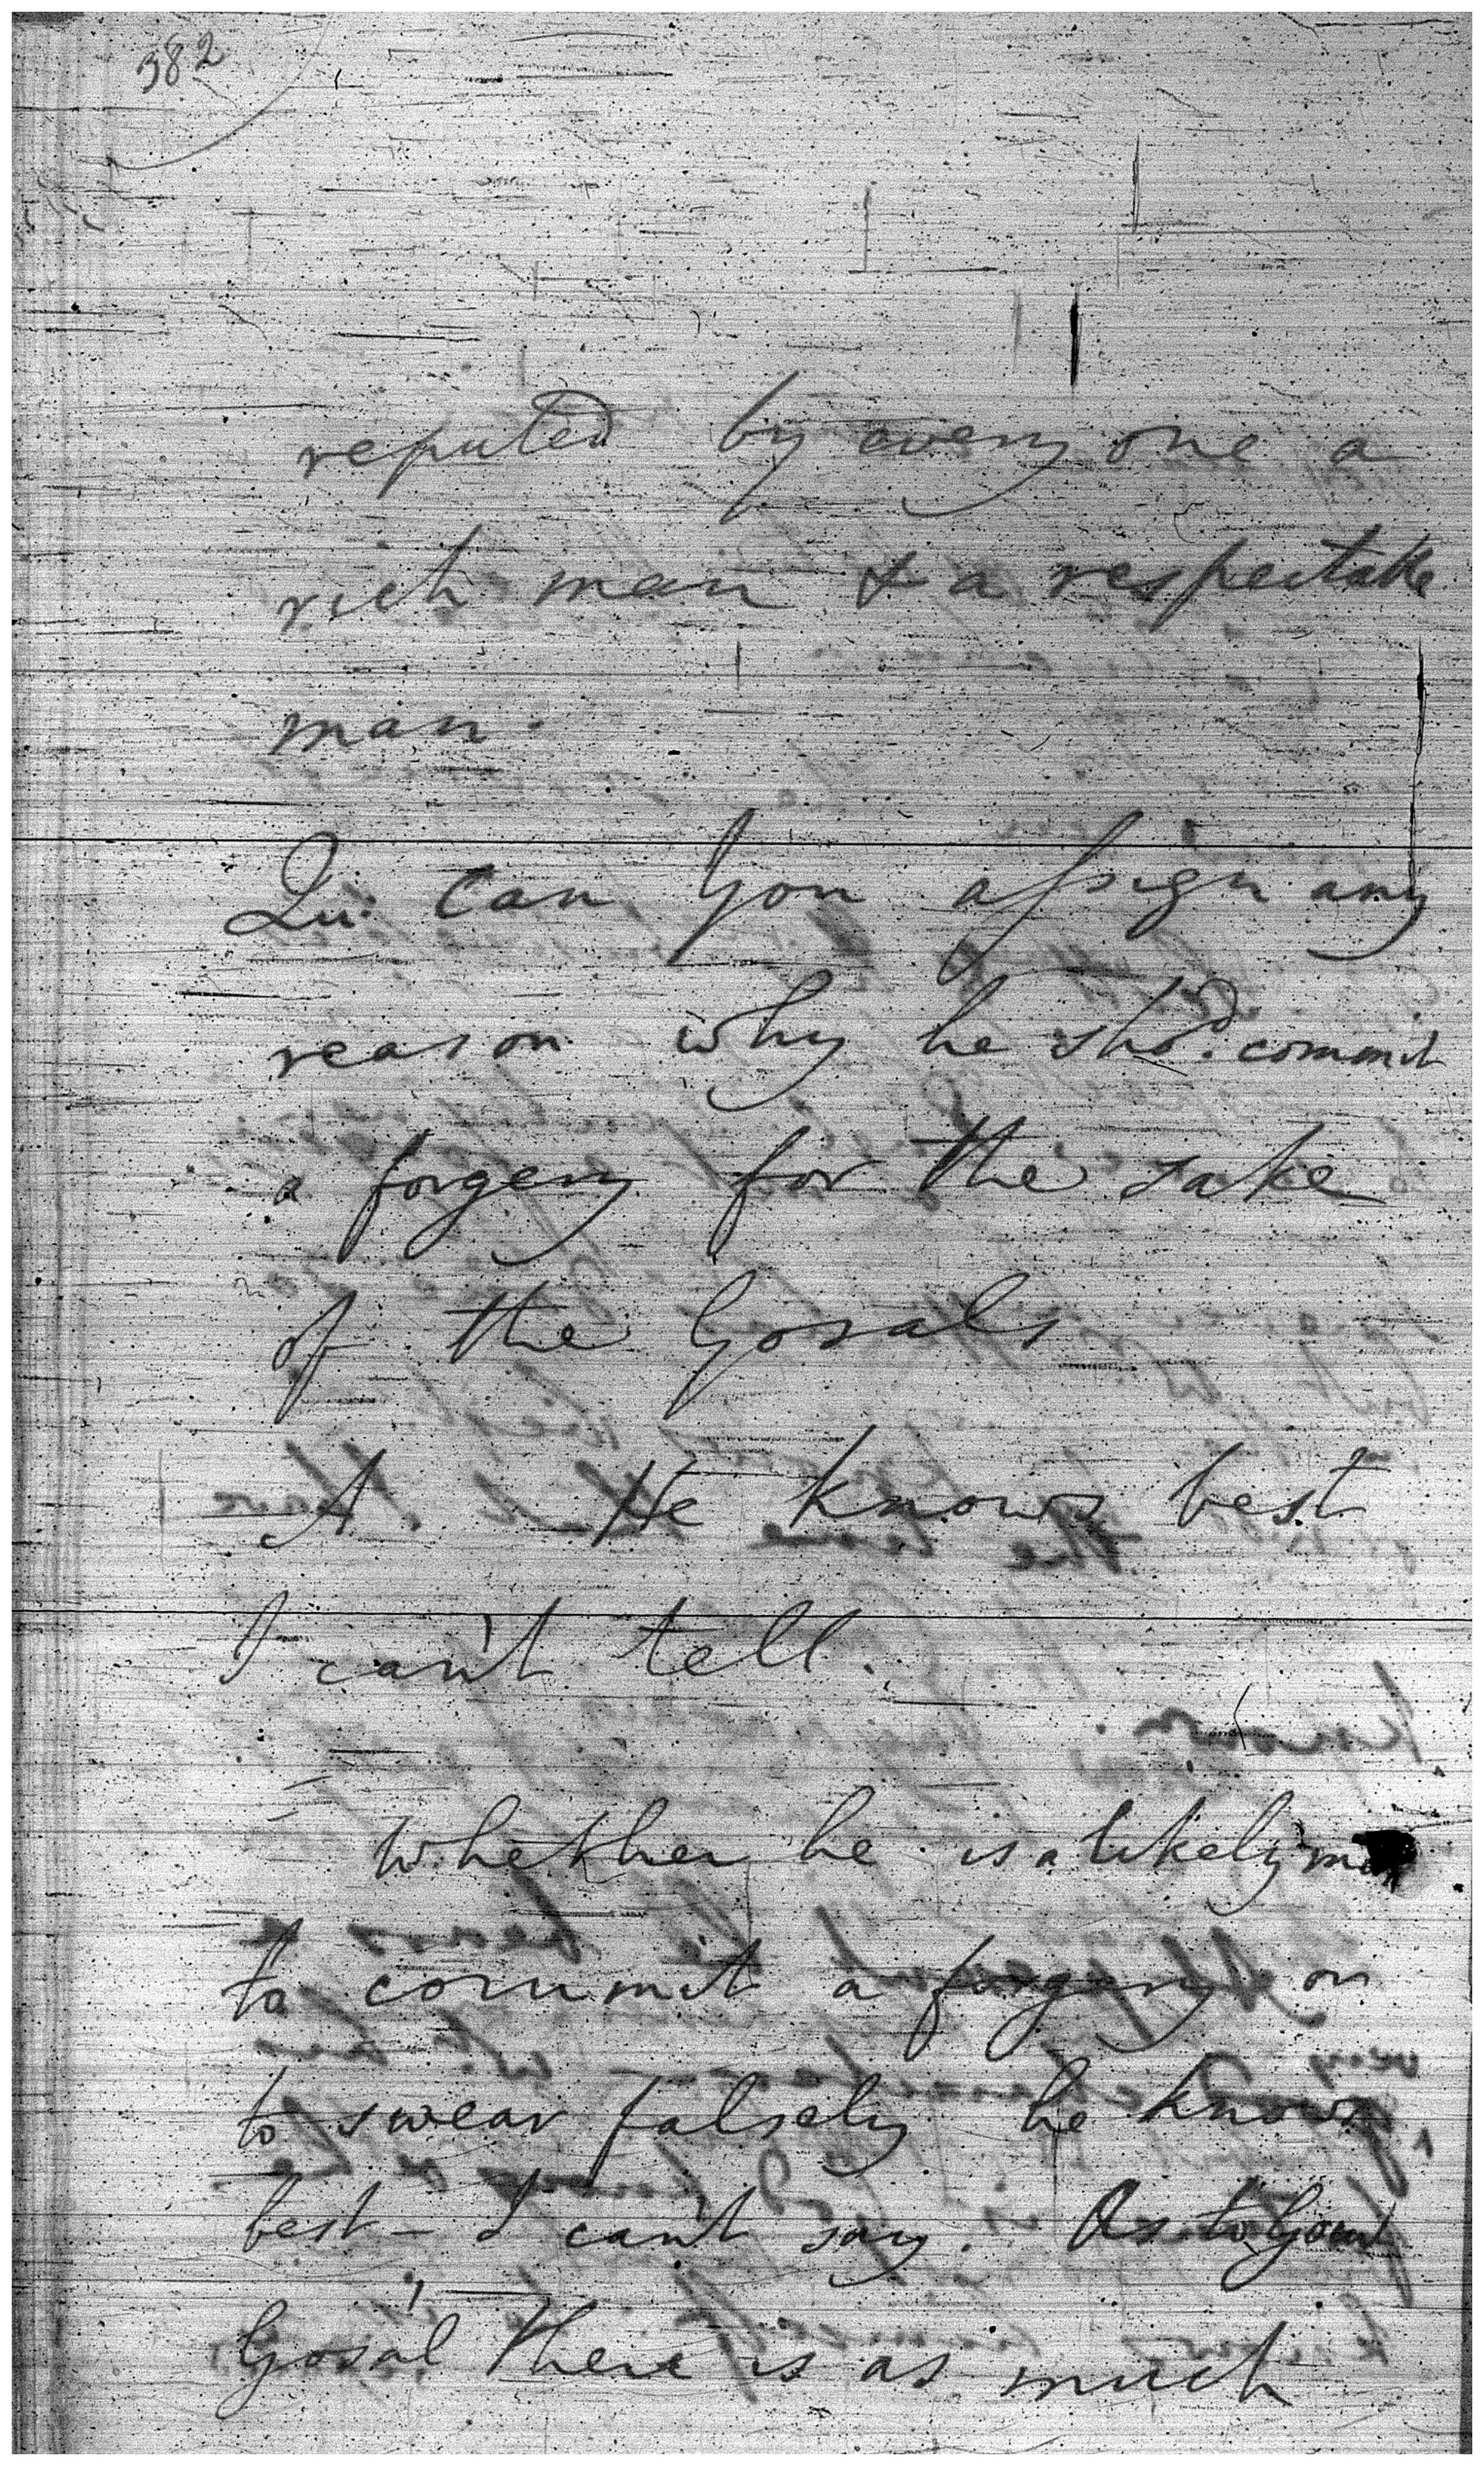 382
reputed by every one a
rich man & a respectable
man.
Qu: can you assign any
reason why he sho.d commit
a forgery for the sake
of the Gosals
A. He knows best
I can't tell.
Whether he is a likely man
to commit a forgery or
to swear falsely he knows
best – I can't say. As to
Gosal there is as much